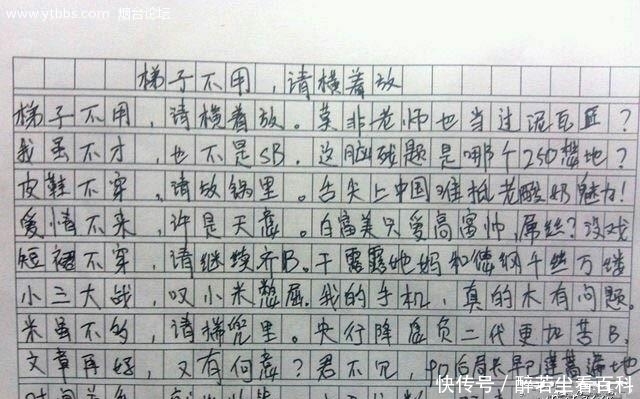 www.ytbbs.com 烟台论坛
梯子不用，请横着放
梯子不用，请横着放。莫非老师也当过泥瓦匠？
我虽不才，也不是SB。这脑残题是哪个250想地？
皮鞋不穿，请放锅里。舌尖上中国难抵老酸奶魅力！
爱情不来，许是天意。白富美只爱高富帅，屌丝？没戏
短裙不穿，请继续齐B。干露露她妈和德纲千丝万缕
小三大战，叹小米憋屈。我的手机，真的木有问题。
米虽不多，请揣兜里。央行降息负二代更加苦B。
文章再好，又有何意？君不见，90后局长早已遍地
快传号 / 醉若尘看百科